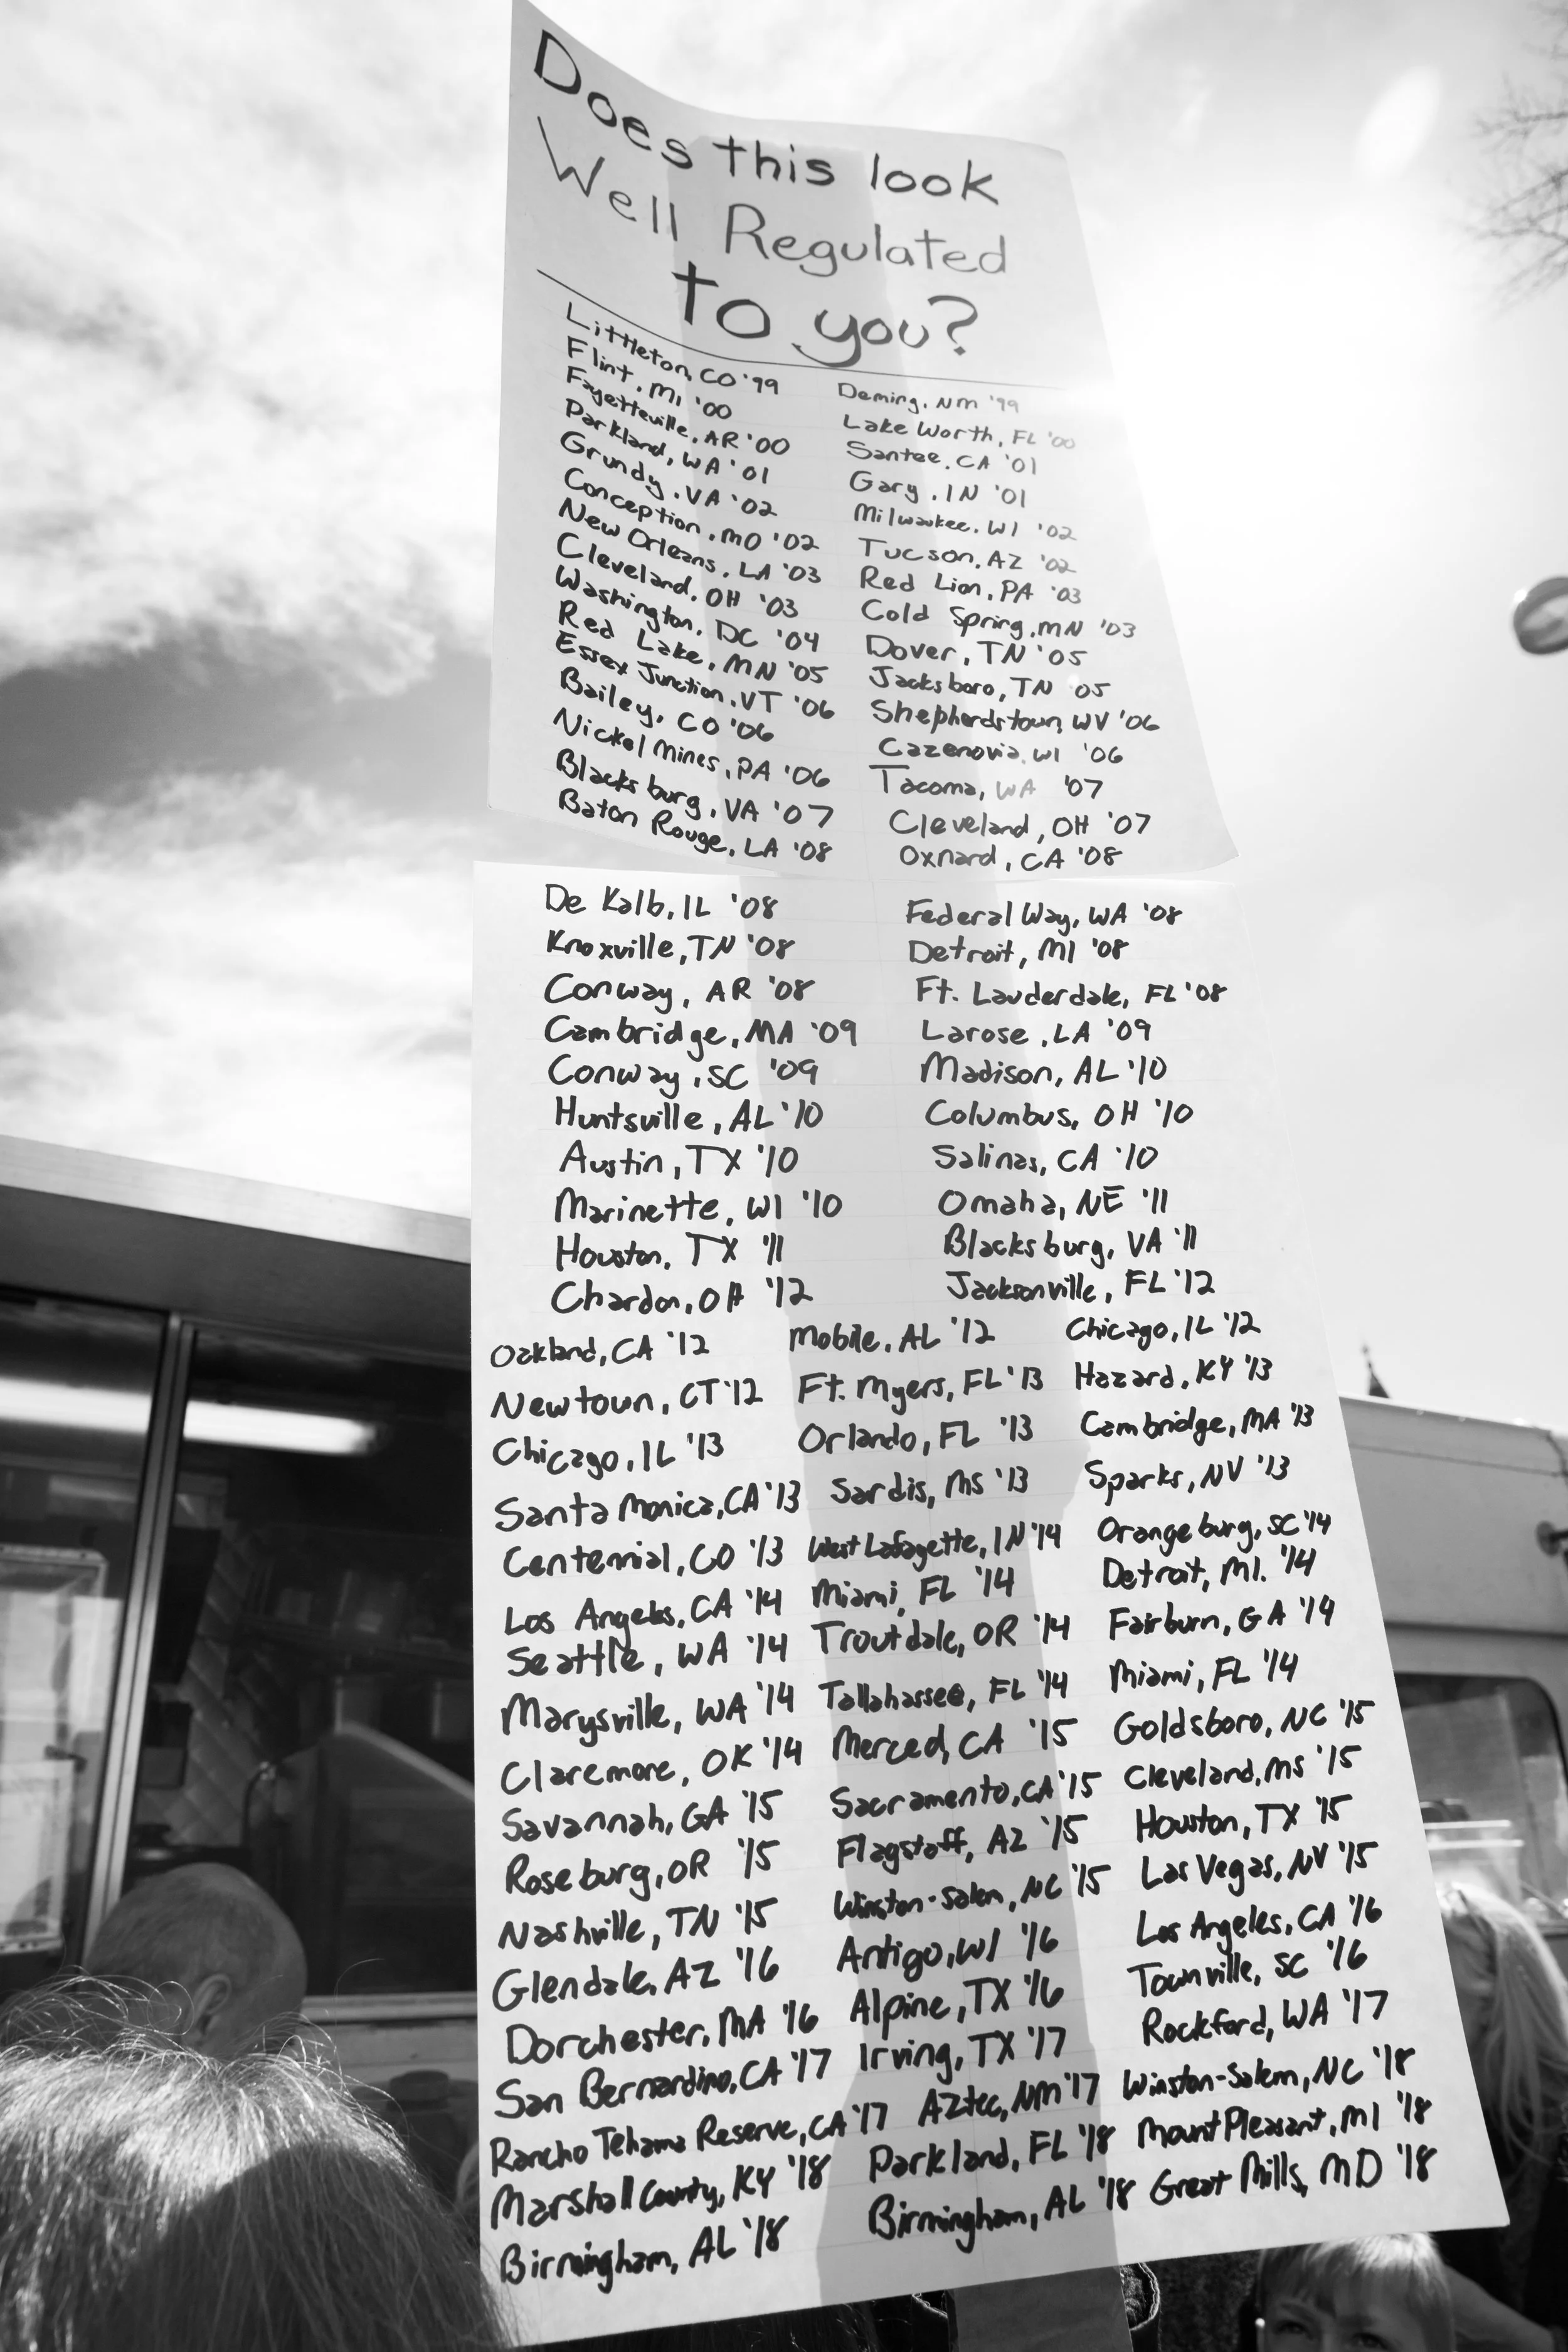 Does this look
Well Regulated
to you?
Littleton, CO '99 Deming, NM '99
Flint, MI '00 Lake Worth, FL '00
Fayetteville, AR '00 Santee, CA '01
Parkland, WA '01 Gary, IN '01
Grundy, VA '02 Milwaukee, WI '02
Conception, MO '02 Tucson, AZ '02
New Orleans, LA '03 Red Lion, PA '03
Cleveland, OH '03 Cold Spring, MN '03
Washington, DC '04 Dover, TN '05
Red Lake, MN '05 Jacksboro, TN '05
Essex Junction, VT '06 Shepherdstown, WV '06
Bailey, CO '06 Cazenovia, WI '06
Nickel Mines, PA '06 Tacoma, WA '07
Blacksburg, VA '07 Cleveland, OH '07
Baton Rouge, LA '08 Oxnard, CA '08
De Kalb, IL '08 Federal Way, WA '08
Knoxville, TN '08 Detroit, MI '08
Conway, AR '08 Ft. Lauderdale, FL '08
Cambridge, MA '09 Larose, LA '09
Conway, SC '09 Madison, AL '10
Huntsville, AL '10 Columbus, OH '10
Austin, TX '10 Salinas, CA '10
Marinette, WI '10 Omaha, NE '11
Houston, TX '11 Blacksburg, VA '11
Chardon, OH '12 Jacksonville, FL '12
Oakland, CA '12 Mobile, AL '12 Chicago, IL '12
Newtown, CT '12 Ft. Myers, FL '13 Hazard, KY '13
Chicago, IL '13 Orlando, FL '13 Cambridge, MA '13
Santa Monica, CA '13 Sardis, MS '13 Sparks, NV '13
Centennial, CO '13 West Lafayette, IN '14 Orangeburg, SC '14
Los Angeles, CA '14 Miami, FL '14 Detroit, MI. '14
Seattle, WA '14 Troutdale, OR '14 Fairburn, GA '14
Marysville, WA '14 Tallahassee, FL '14 Miami, FL '14
Claremore, OK '14 Merced, CA '15 Goldsboro, NC '15
Savannah, GA '15 Sacramento, CA '15 Cleveland, MS '15
Roseburg, OR '15 Flagstaff, AZ '15 Houston, TX '15
Nashville, TN '15 Winston-Salem, NC '15 Las Vegas, NV '15
Glendale, AZ '16 Antigo, WI '16 Los Angeles, CA '16
Dorchester, MA '16 Alpine, TX '16 Townville, SC '16
San Bernardino, CA '17 Irving, TX '17 Rockford, WA '17
Rancho Tehama Reserve, CA '17 Aztec, NM '17 Winston-Salem, NC '18
Marshall County, KY '18 Parkland, FL '18 Mount Pleasant, MI '18
Birmingham, AL '18 Birmingham, AL '18 Great Mills, MD '18